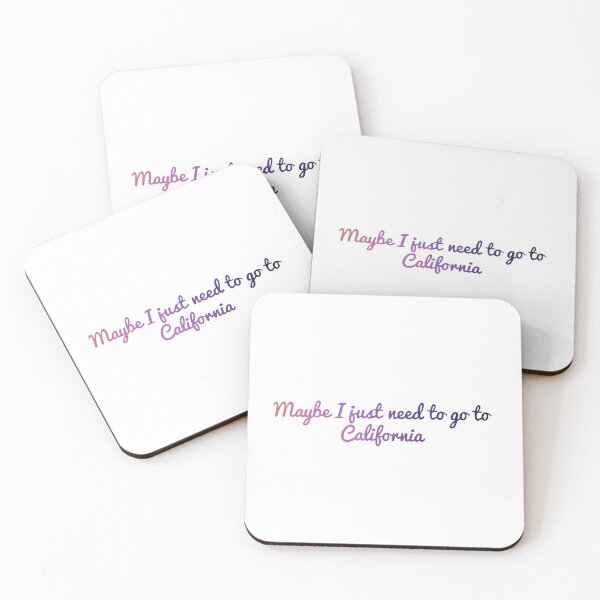 Maybe I just need to go
Maybe I just need to go to
California
Maybe I just need to go to
California
Maybe I just need to go to
California